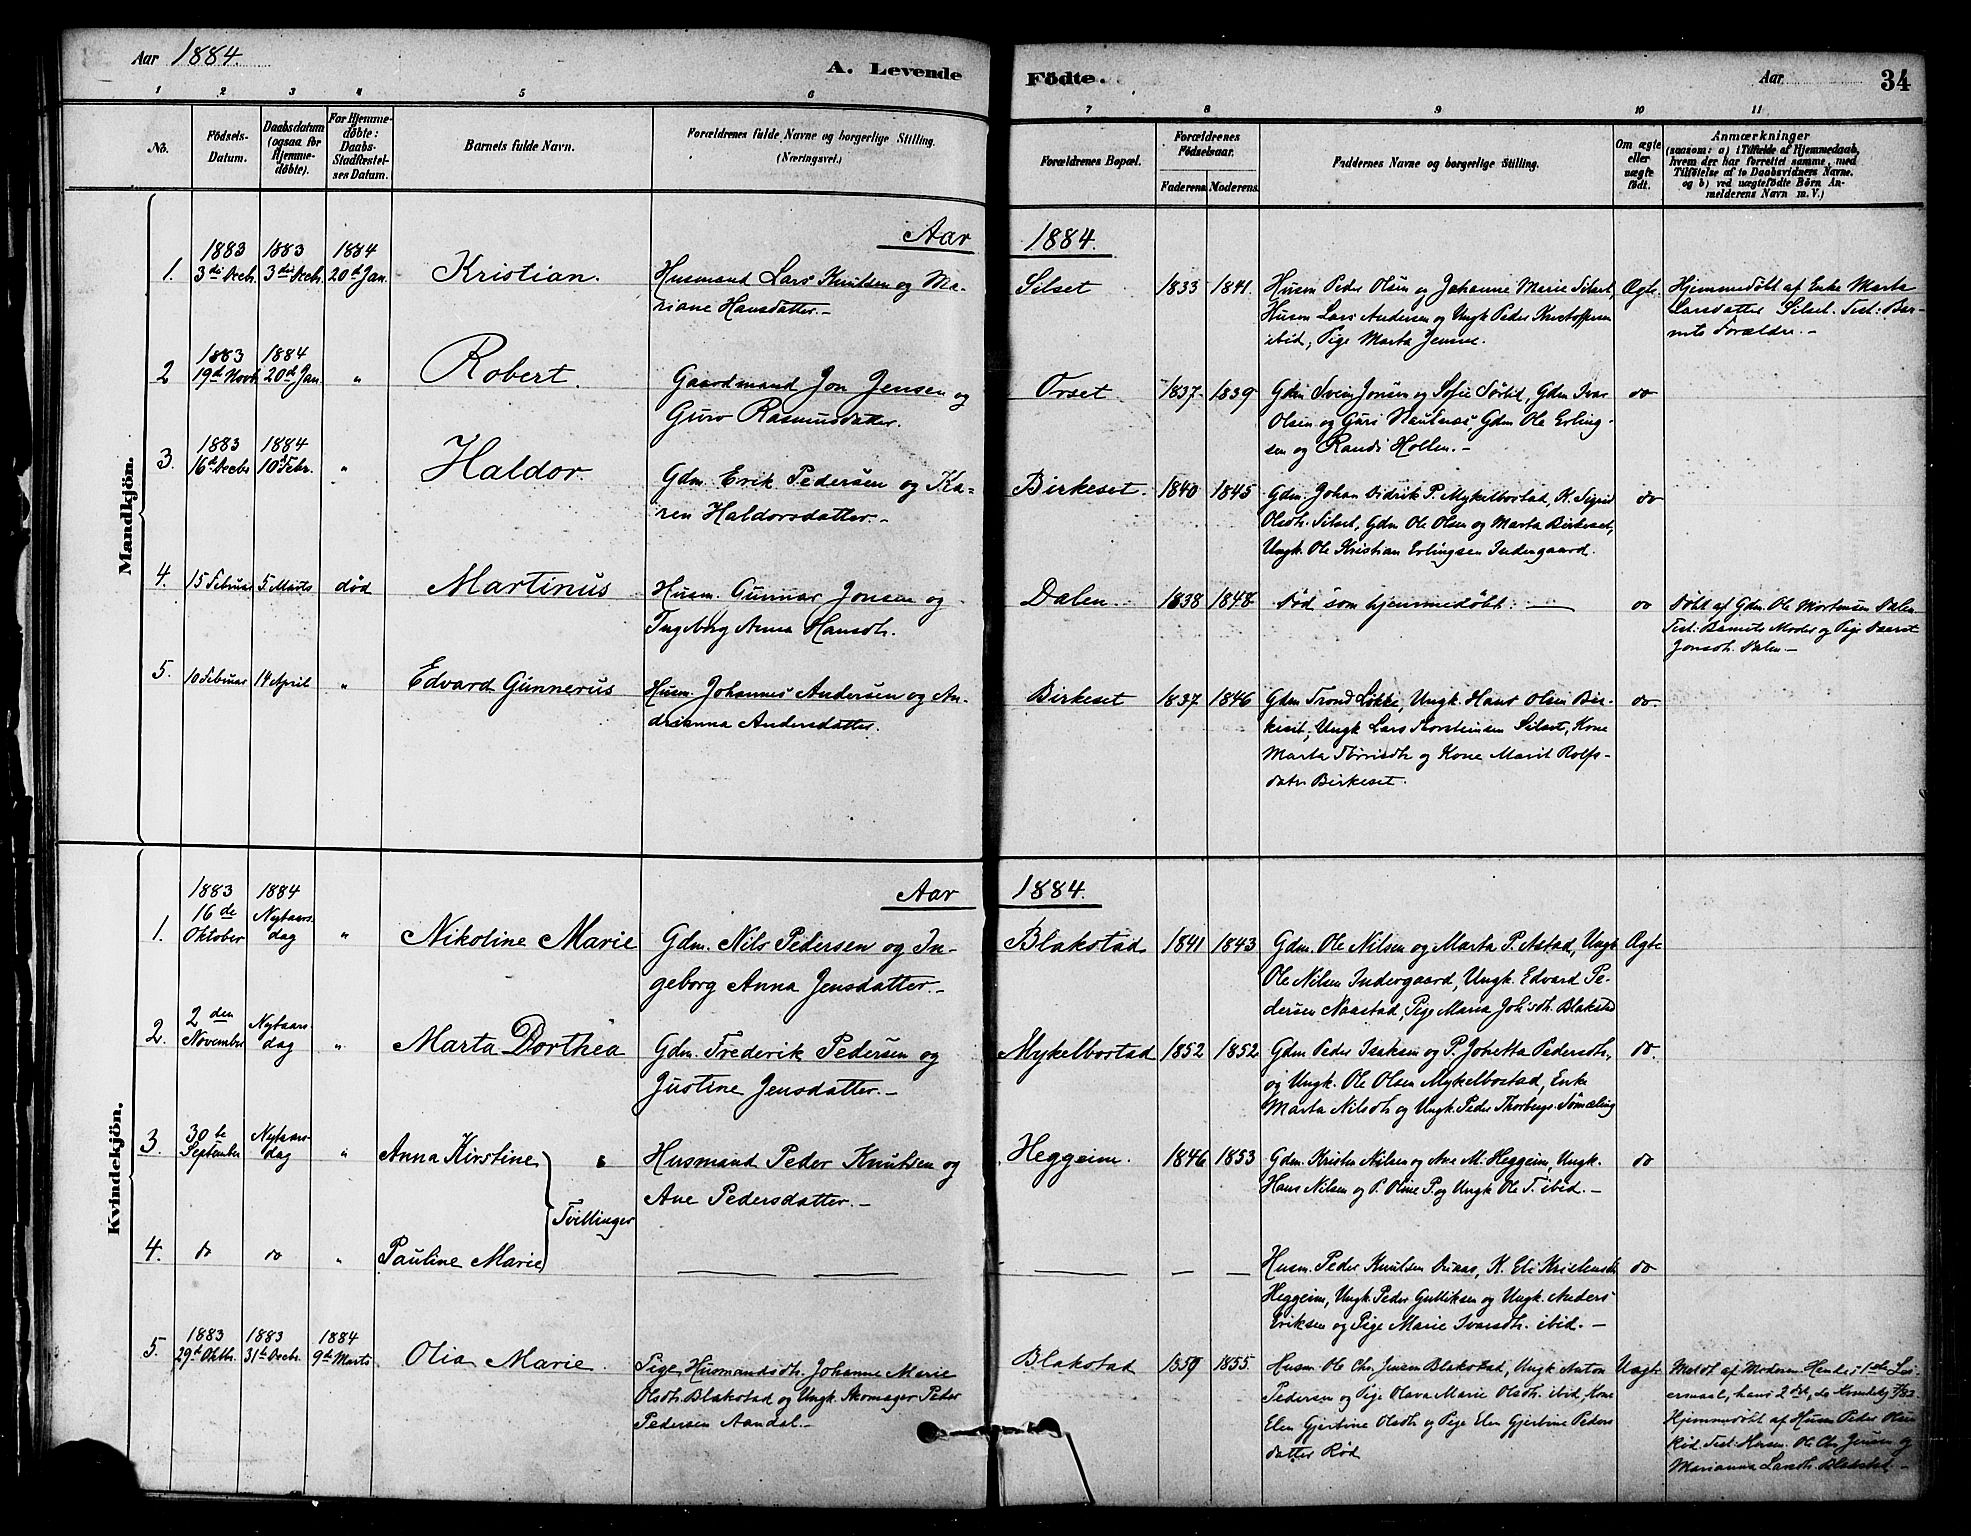 Aar 1884.
A. Levende
Födte.
Aar
34
1 2 3 4 5 6
7 8 9 10 11
No.
Födsels-
Datum.
Daabsdatum
(ogsaa for
Hjemme-
döbte).
For Hjemme-
döbte:
Daabs-
Stadfæstel-
ses Datum.
Barnets fulde Navn.
Forældrenes fulde Navne og borgerlige Stilling.
(Næringsvei.)
Forældrenes Bopæl.
Forældrenes
Födselsaar.
Faderens. Moderens.
Faddernes Navne og borgerlige Stilling.
Om ægte
eller
uægte
födt.
Anmærkninger
(saasom: a) i Tilfælde af Hjemmedaab,
hvem der har forrettet samme, med
Tilföielse af to Daabsvidners Navne.
og b) ved uægtefödte Börn An-
melderens Navn m. V.)
Mandkjön.
Aar
1884.
1.
1883
3die Decb.
1883
3die Decb.
1884
20d Jan.
Kristian.
Husmand Lars Knutsen og Ma-
riane Hansdatter.-
Silset
1833 1841.
Husm Peder Olsen og Johanne Marie Silset,
Husm Lars Andersen og Ungk Peder Kristoffersen
ibid, Pige Marta Jensine.
Ægte.
Hjemmedöbt af Enke Marta
Larsdatter Silset. Test: Bar-
nets Forældre.-
2
1883
19d Novb.
1884
20d Jan.
"
Robert.
Gaardmand Jon Jensen og
Guro Rasmusdatter.
Orset
1837- 1839
Gdm Svein Jonsen og Sofie Sørlid, Gdm Ivar
Olsen og Guri Nautnes, Gdm Ole Erling-
sen og Randi Hollen.-
do
3.
1883
16d Decbr
1884
10d Febr.
"
Haldor.
Gdm. Erik Pedersen og Ka-
ren Haldorsdatter.-
Birkeset.
1840 1845
Gdm. Johan Didrik P. Mykelbostad, K. Sigrid
Olsdtr. Silset, Gdm Ole Olsen og Marta Birkeset,
Ungk. Ole Kristian Erlingsen Indergaard.
do
4.
15 Februar
5 Marts
død
Martinus
Husm. Gunnar Jonsen og
Ingeborg Anna Hansdtr.
Dalen.
1838 1848-
Død som hjemmedøbt.-
do
Døbt af Gdm. Ole Mortensen Dalen.
Test: Barnets Moder og Pige
Jonsdtr. Dalen-
5.
10 Februar
14 April
"
Edvard Gunnerus
Husm. Johannes Andersen og An-
drianna Andersdatter.
Birkeset
1837 1846
Gdm Trond Løkke, Ungk. Hans Olsen Bir-
keset, Ungk Lars Torsteinsen Silset, Kone
Marta og Kone Marit Rolfs-
datr Birkeset.
do.
Kvindekjön.
Aar
1884.
1.
1883
16de
Oktober
1884
Nytaars-
dag
"
Nikoline Marie
Gdm. Nils Pedersen og In-
geborg Anna Jensdatter.-
Blakstad
1841 1843
Gdm. Ole Nilsen og Marta P. Astad, Ungk.
Ole Nilsen Indergaard, Ungk. Edvard Pe-
dersen Naastad, Pige Maria Joh'sdtr. Blakstad
Ægte
2.
2den
November
Nytaars-
dag
"
Marta Dorthea
Gdm. Frederik Pedersen og
Justine Jensdatter.-
Mykelbostad
1852 1852
Gdm Peder Isaksen og P. Johetta Pedersdtr.,
og Ungk. Ole Olsen Mykelbostad, Enke
Marta Nilsdtr og Ungk. Peder Thorbergs.
do.
3.
30te
September
Nytaars-
dag
"
Anna Kirstine
Tvillinger
Husmand Peder Knutsen og
Ane Pedersdatter.-
Heggeim.
1846 1853
Gdm. Kristen Nilsen og Ane M. Heggeim, Ungk.
Hans Nilsen og P. Oline P. og Ungk Ole T. ibid.-
do
4.
do
do
"
Pauline Marie
Husm. Peder Knutsen K. Eli Kristensdtr
Heggeim, Ungk. Peder Gulliksen og Ungk. Anders
Eriksen og Pige Marie Ivarsdtr. ibid.-
do
5.
1883
29d Oktbr.
1883
31te Decbr.
1884
9d Marts
Olia Marie.
Pige, Husmandsdtr. Johanne Marie
Olsdtr. Blakstad og Ungk. Skomager Peder
Pedersen Aandal.-
Blakstad
1859 1855.
Husm. Ole Chr. Jensen Blakstad, Ungk Anton
Pedersen og Pige Olava Marie Olsdtr. ibid, Kone
Elen Gjertine Olsdtr og Pige Elen Gjertine Peders
datter Rød
Uægte
Meldt af Moderen. Hendes 1ste Lei-
ermaal, hans 2det,
Hjemmedöbt af Husm Peder
Rød. Test: Husm. Ole Chr. Jensen og
Marianna Larsdtr. Blakstad-